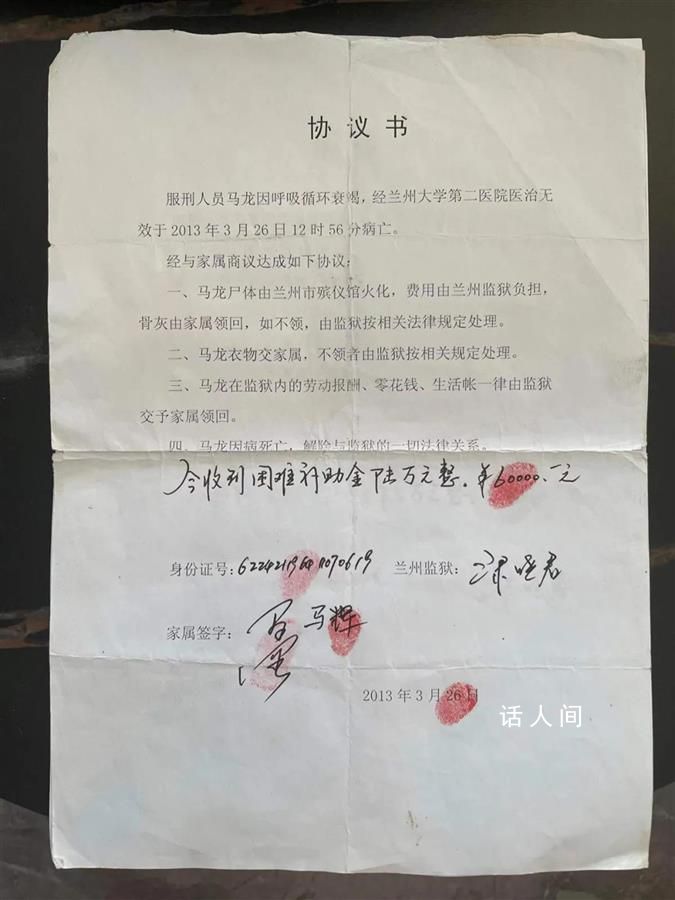 协议书
服刑人员马龙因呼吸循环衰竭，经兰州大学第二医院医治无
效于2013年3月26日12时56分病亡。
经与家属商议达成如下协议：
一、马龙尸体由兰州市殡仪馆火化，费用由兰州监狱负担，
骨灰由家属领回，如不领，由监狱按相关法律规定处理。
二、马龙衣物交家属，不领者由监狱按相关规定处理。
三、马龙在监狱内的劳动报酬、零花钱、生活帐一律由监狱
交予家属领回。
四、马龙因病死亡，解除与监狱的一切法律关系。
今收到困难补助金陆万元整。¥60000.一元
身份证号： 兰州监狱：
家属签字： 马辉
2013年3月26日
话人间